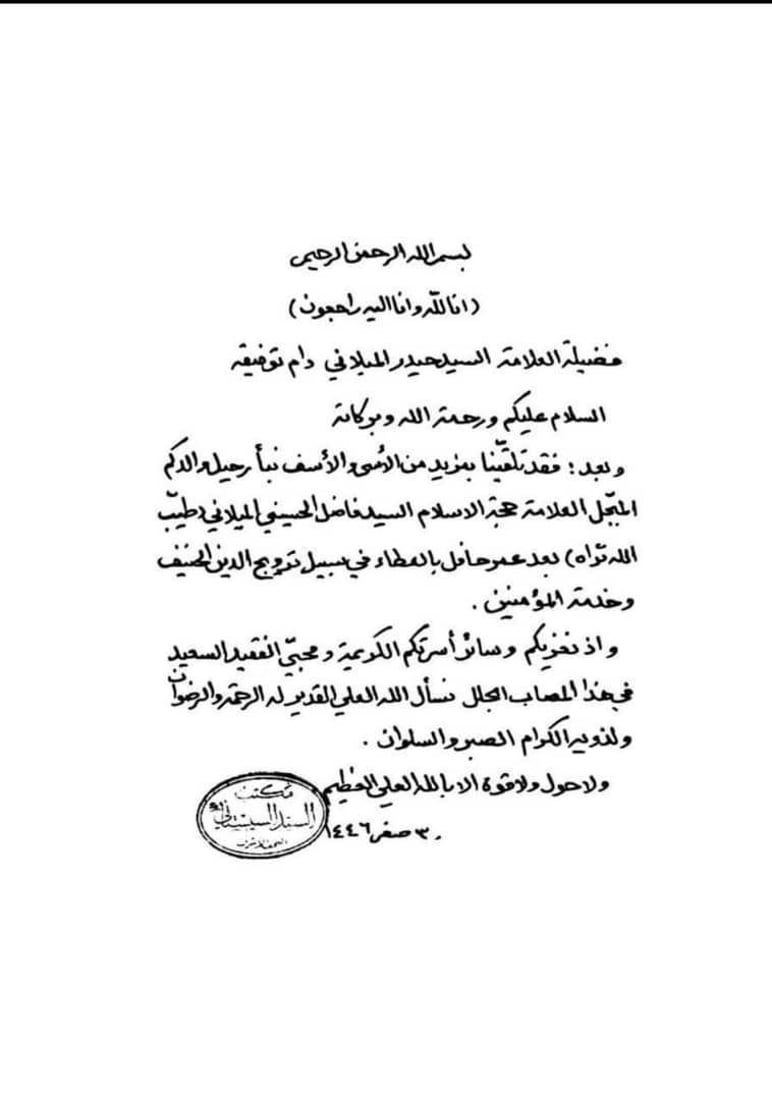 بسم الله الرحمن الرحيم
(انا لله وانا اليه راجعون)
فضيلة العلامة السيد حيدر الميلاني دام توفيقه
السلام عليكم ورحمة الله وبركاته
وبعد: فقد تلقّينا بمزيد من الأسى والأسف نبأ رحيل والدكم
المبجّل العلامة حجة الاسلام السيد فاضل الحسيني الميلاني (طيّب
الله ثراه) بعد عمر حافل بالعطاء في سبيل ترويج الدين الحنيف
وخدمة المؤمنين .
واذ نعزيكم وسائر أسرتكم الكريمة ومحبّي الفقيد السعيد
في هذا المصاب الجلل نسأل الله العلي القدير له الرحمة والرضوان
ولذويه الكرام الصبر والسلوان .
ولا حول ولا قوة الا بالله العلي العظيم
٣٠ صفر ١٤٤٦
مكتب
السيد السيستاني
النجف الاشرف